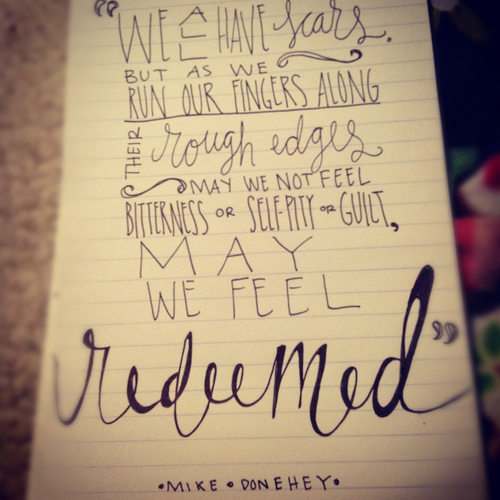 “WE ALL HAVE scars.
BUT AS WE
RUN OUR FINGERS ALONG
THEIR rough edges
MAY WE NOT FEEL
BITTERNESS OR SELF-PITY OR GUILT,
MAY
WE FEEL
redeemed”
•MIKE • DONEHEY•